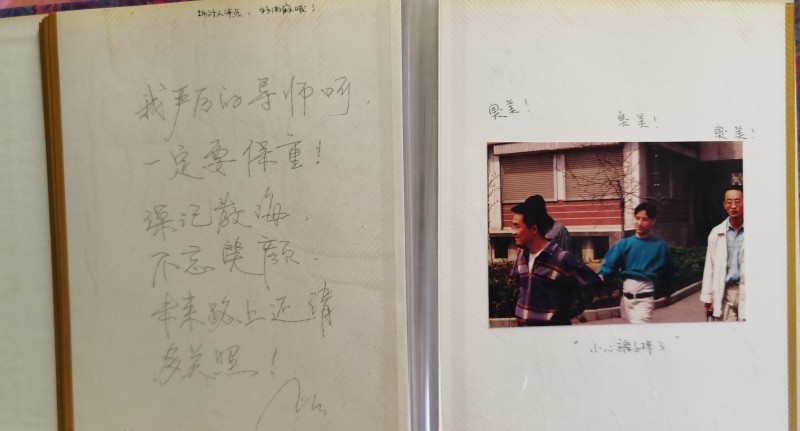 我严厉的导师呵，
一定要保重！
深记教诲，
不忘笑颜．
未来路上还请
多关照！
奥美！
奥美！
奥美！
"小心裤子掉了"